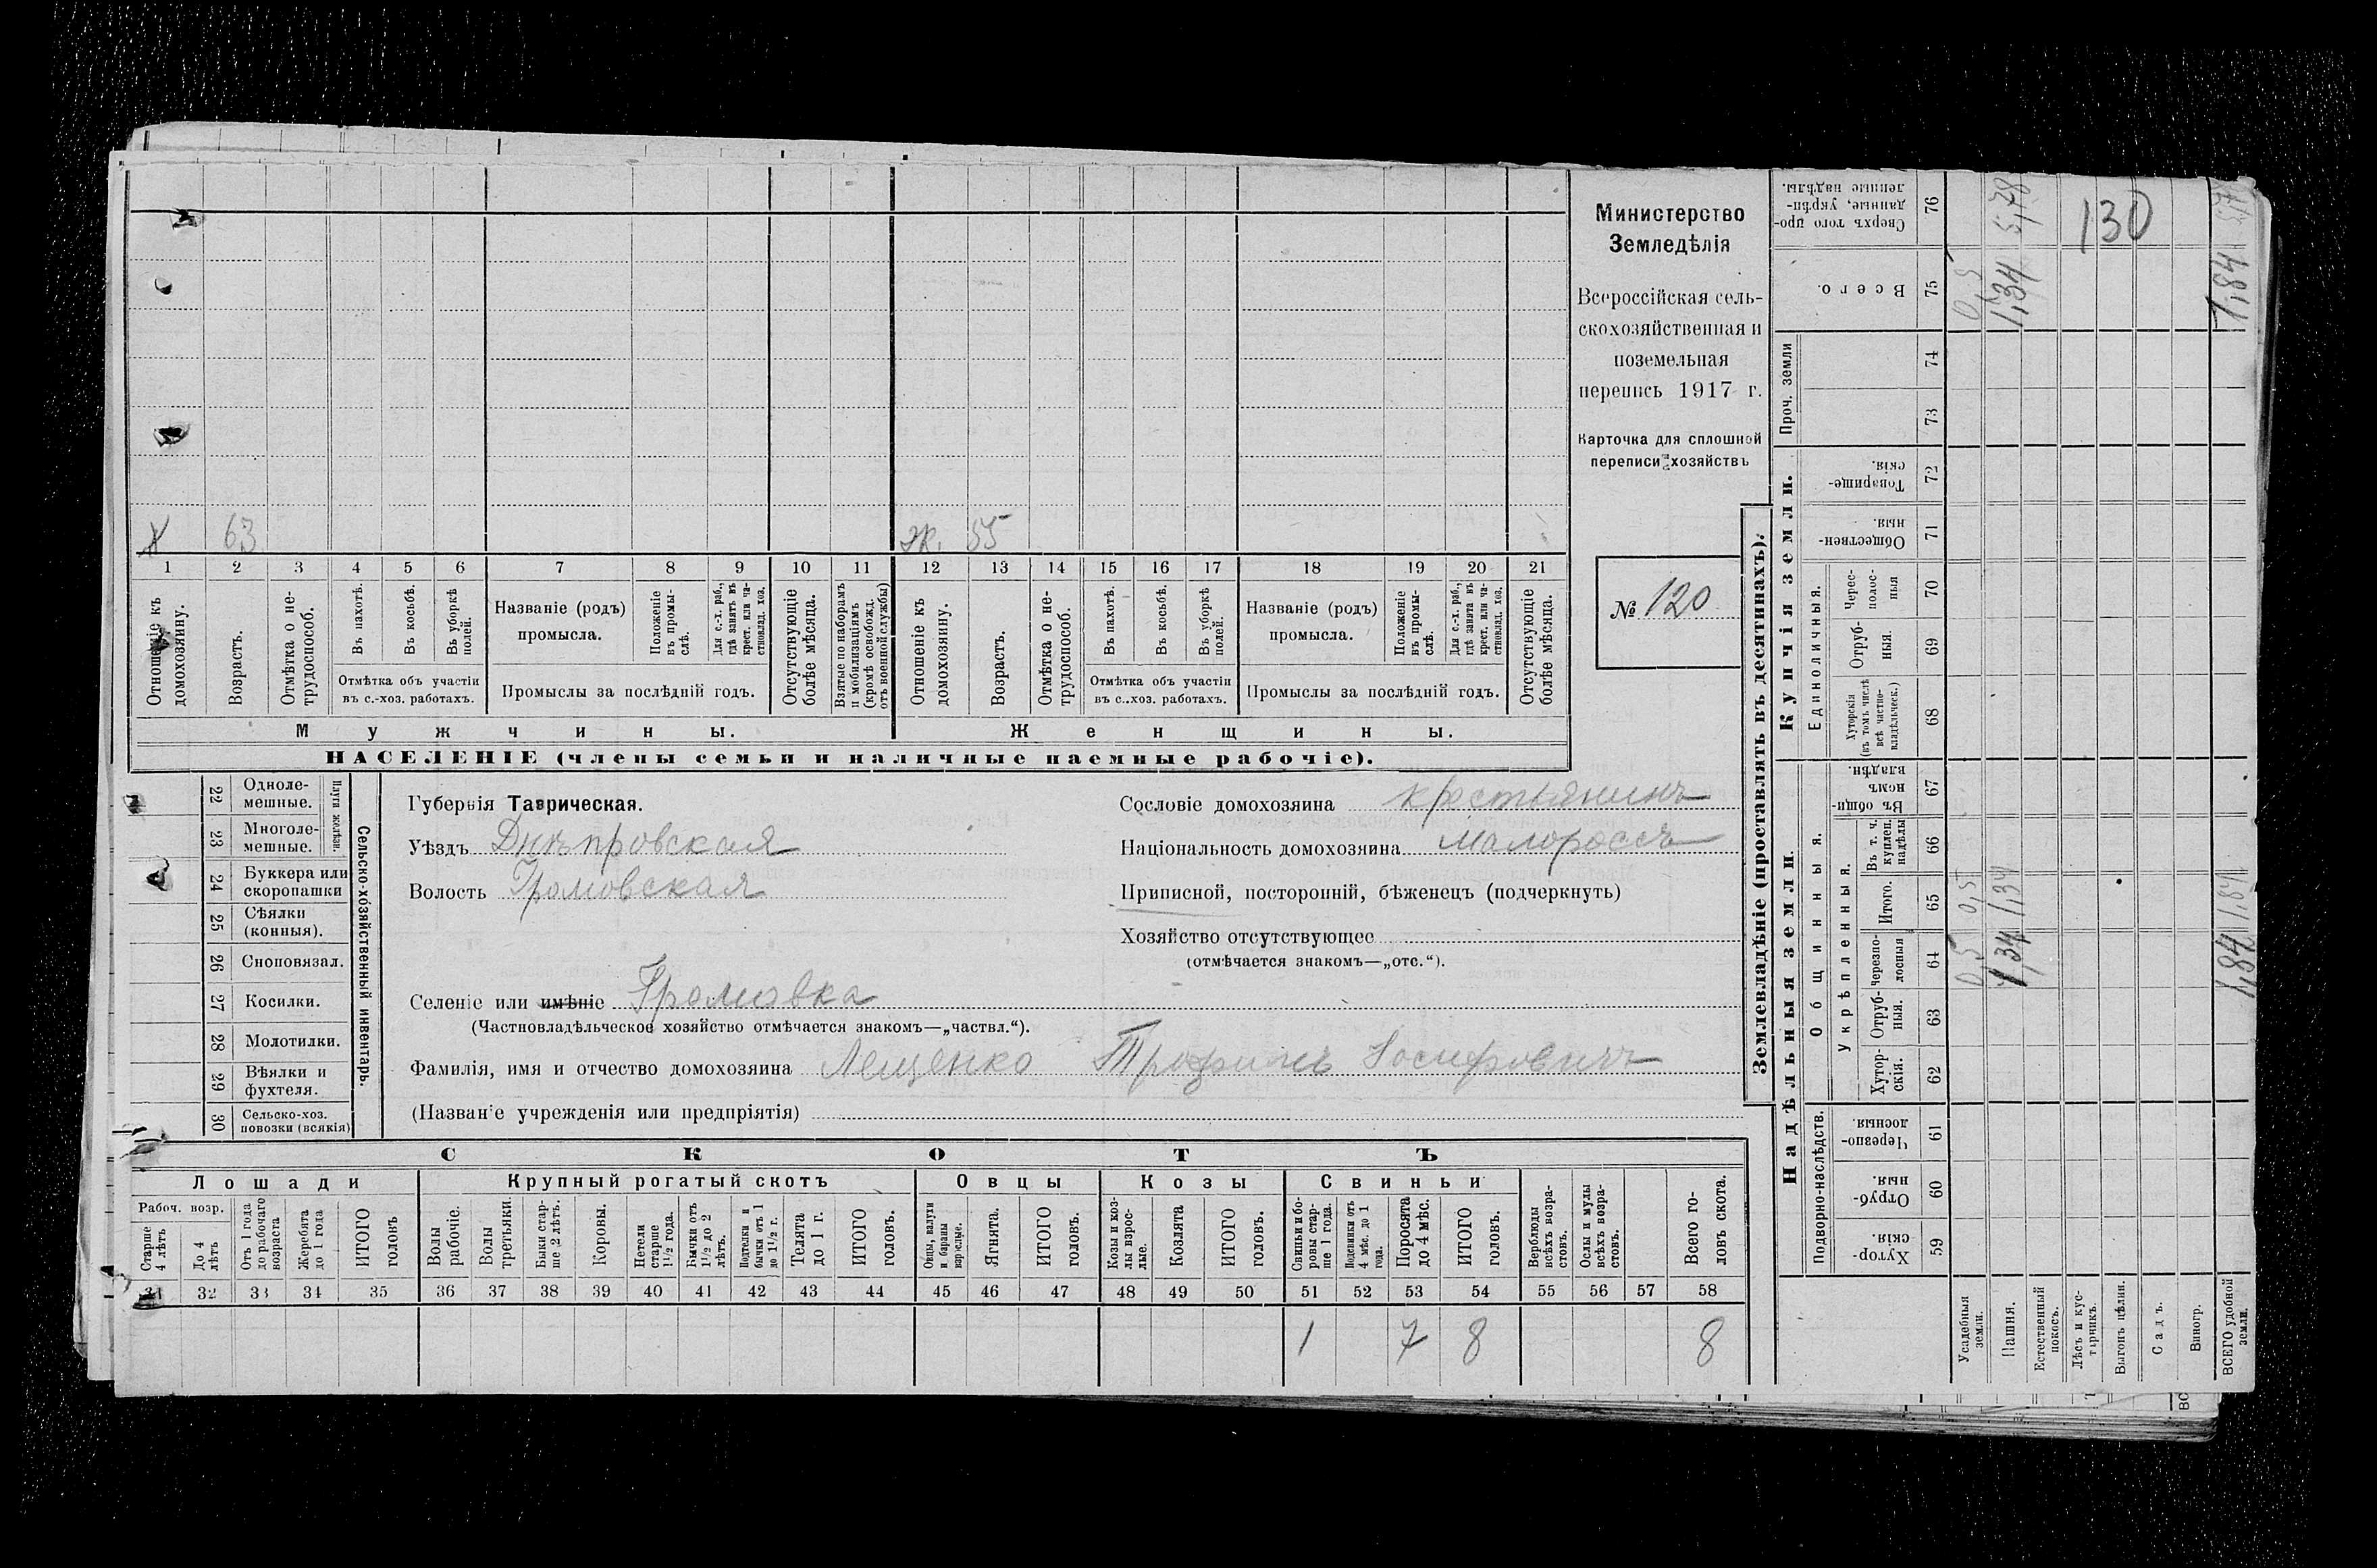 Министерство
Земледѣлія
Всероссійская сель-
скохозяйственная и
поземельная
перепись 1917 г.
Карточка для сплошной
переписи хозяйствъ
№ 120
63
ж. 55
1 2 3 4 5 6 7 8 9 10 11 12 13 14 15 16 17 18 19 20 21
Отношеніе къ домохозяину.
Возрастъ.
Отмѣтка о не-трудоспособ.
Въ пахотѣ.
Въ косьбѣ.
Въ уборкѣ полей.
Отмѣтка объ участіи
въ с.-хоз. работахъ.
Названіе (родъ)
промысла.
Положеніе въ промы-слѣ.
Для с.-х. раб., гдѣ занятъ въ крест. или ча-стновлад. хоз.
Промыслы за послѣдній годъ.
Отсутствующіе болѣе мѣсяца.
Взятые по наборамъ и мобилизаціямъ (кромѣ освобожд. отъ военной службы)
Отношеніе къ домохозяину.
Возрастъ.
Отмѣтка о не-трудоспособ.
Въ пахотѣ.
Въ косьбѣ.
Въ уборкѣ полей.
Отмѣтка объ участіи
въ с.-хоз. работахъ.
Названіе (родъ)
промысла.
Положеніе въ промы-слѣ.
Для с.-х. раб., гдѣ занята въ крест. или ча-стновлад. хоз.
Промыслы за послѣдній годъ.
Отсутствующіе болѣе мѣсяца.
Мужчины.
Женщины.
НАСЕЛЕНІЕ (члены семьи и наличные наемные рабочіе).
22 Одноле-мешные.
23 Многоле-мешные.
Плуги желѣзн.
24 Буккера или скоропашки
25 Сѣялки (конныя).
26 Сноповязал.
27 Косилки.
28 Молотилки.
29 Вѣялки и фухтеля.
30 Сельско-хоз. повозки (всякія)
Сельско-хозяйственный инвентарь.
Губернія Таврическая.
Уѣздъ Днѣпровская
Волость Громовская
Селеніе или имѣніе Громовка
(Частновладѣльческое хозяйство отмѣчается знакомъ—„частвл.“).
Фамилія, имя и отчество домохозяина Лещенко Трофимъ Іосифовичъ
(Названіе учрежденія или предпріятія)
Сословіе домохозяина крестьянинъ
Національность домохозяина малороссъ
Приписной, посторонній, бѣженецъ (подчеркнуть)
Хозяйство отсутствующее
(отмѣчается знакомъ—„отс.“).
СКОТЪ
Лошади
Крупный рогатый скотъ
Овцы
Козы
Свиньи
Рабоч. возр.
Старше 4 лѣтъ
До 4 лѣтъ
Отъ 1 года до рабочаго возраста
Жеребята до 1 года
ИТОГО головъ
Волы рабочіе.
Волы третьяки.
Быки стар-ше 2 лѣтъ.
Коровы.
Нетели старше 1½ года.
Бычки отъ 1½ до 2 лѣтъ.
Подтелки и бычки отъ 1 до 1½ г.
Телята до 1 г.
ИТОГО головъ.
Овцы, валухи и бараны взрослые.
Ягнята.
ИТОГО головъ.
Козы и коз-лы взрос-лые.
Козлята
ИТОГО головъ.
Свиньи и бо-ровы стар-ше 1 года.
Подсвинки отъ 4 мѣс. до 1 года.
Поросята до 4 мѣс.
ИТОГО головъ.
Верблюды всѣхъ возра-стовъ.
Ослы и мулы всѣхъ возра-стовъ.
Всего го-ловъ скота.
31 32 33 34 35 36 37 38 39 40 41 42 43 44 45 46 47 48 49 50 51 52 53 54 55 56 57 58
1 7 8 8
Землевладѣніе (проставлять въ десятинахъ).
Надѣльныя земли.
Купчія земли.
Проч. земли
Подворно-наслѣдств.
Общинныя.
Укрѣпленныя.
Единоличныя.
Хутор-скія. 59
Отруб-ныя. 60
Черезпо-лосныя. 61
Хутор-скія. 62
Отруб-ныя. 63
Черезпо-лосныя 64
Итого. 65
Въ т. ч. куплен. надѣлы 66
Въ общи-номъ владѣн. 67
Хуторскія (въ томъ числѣ всѣ частно-владѣльческ.) 68
Отруб-ныя. 69
Черес-полос-ныя 70
Обществен-ныя. 71
Товарище-скія. 72
73
74
Всего. 75
Сверхъ того про-данные, укрѣп-ленные надѣлы. 76
Усадебныя земли. 0,5 0,5 0,5
Пашня. 1,34 1,34 1,34 5,78
Естественный покосъ.
Лѣсъ и кус-тарникъ.
Выгонъ цѣлин.
Садъ.
Виногр.
ВСЕГО удобной земли. 1,84 1,84 1,84 5,78
130